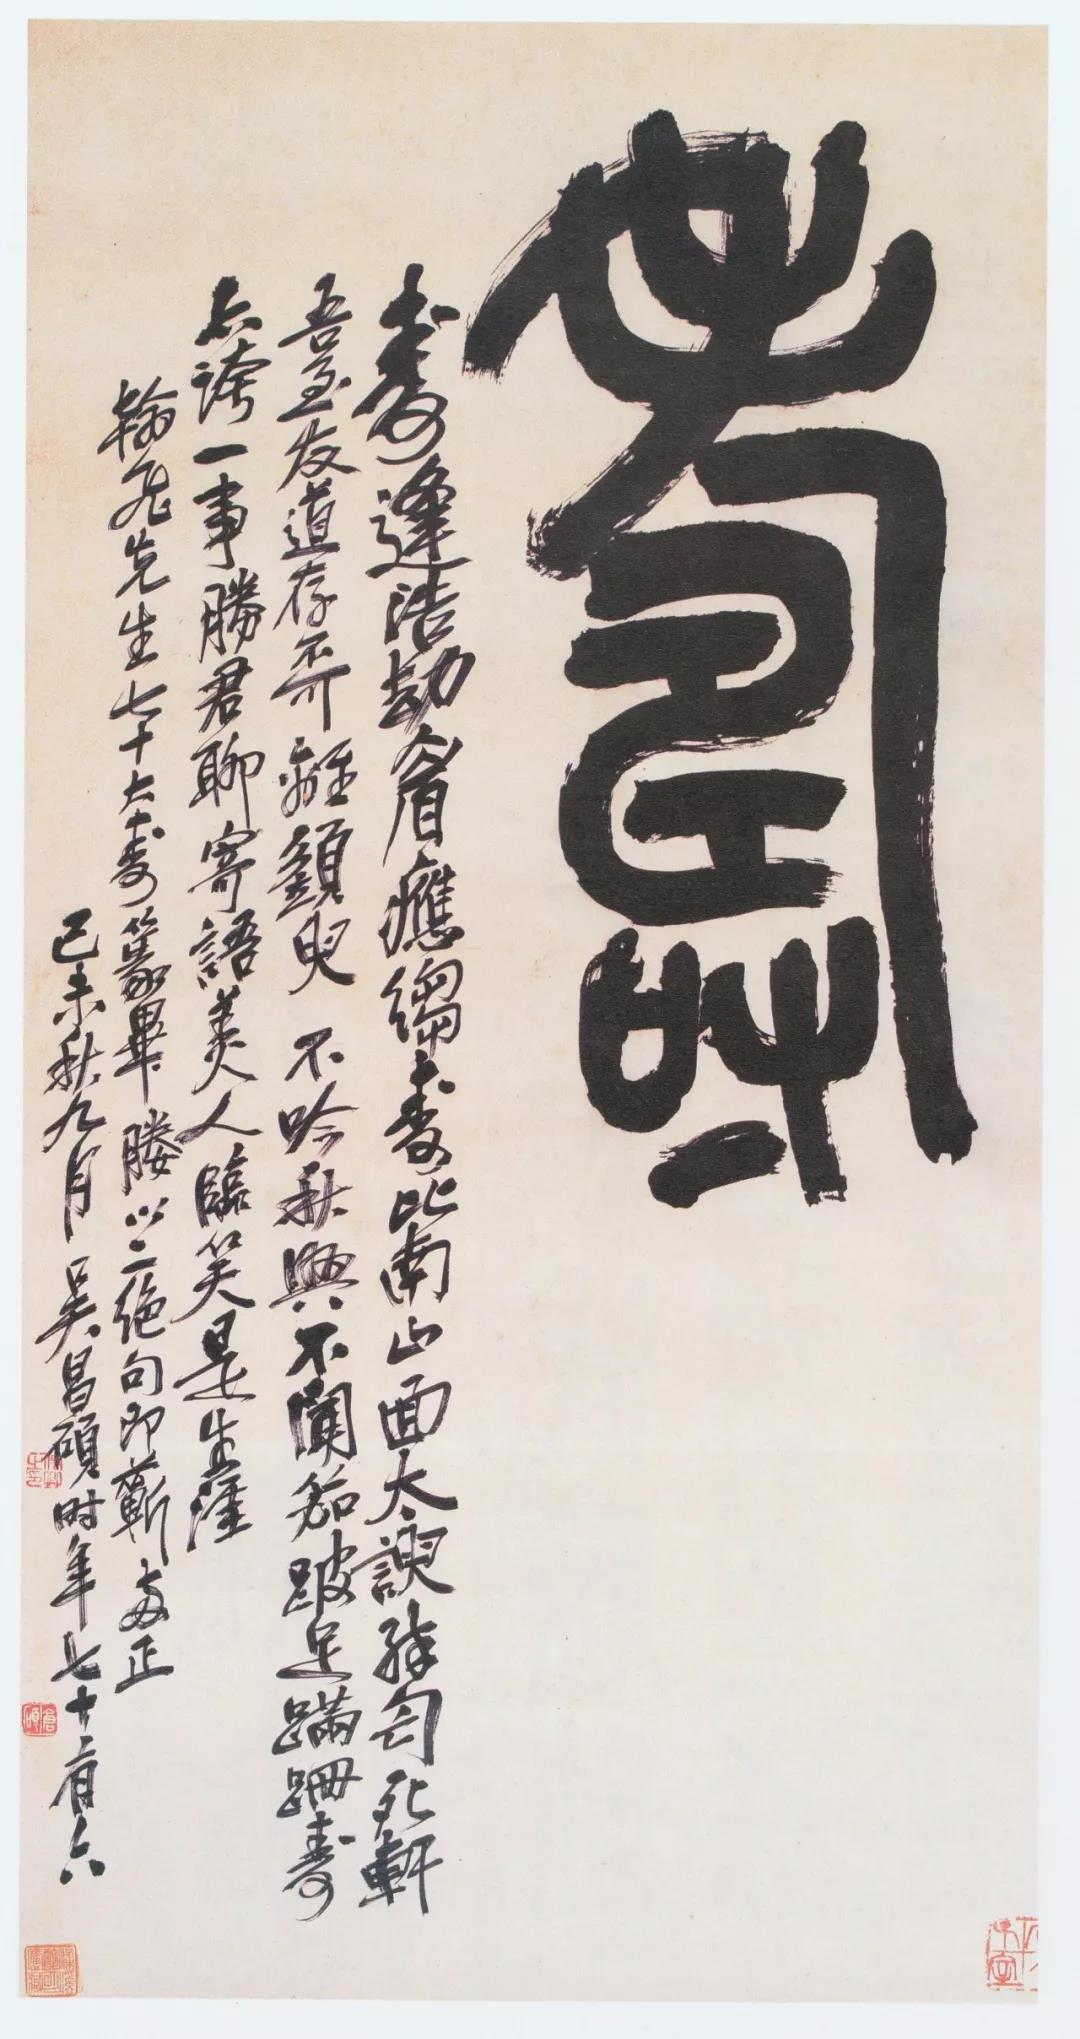 壽
壽逢浩劫眉應縐壽比南山面太諛匄死軒
吾至友道存不吟秋興不聞笳跛足蹣跚壽
亦誇一事勝君聊寄語美人臨笑是生涯
先生七十大壽篆畢媵以二絕句即蘄教正
己未秋九月吳昌碩時年七十有六
倉碩